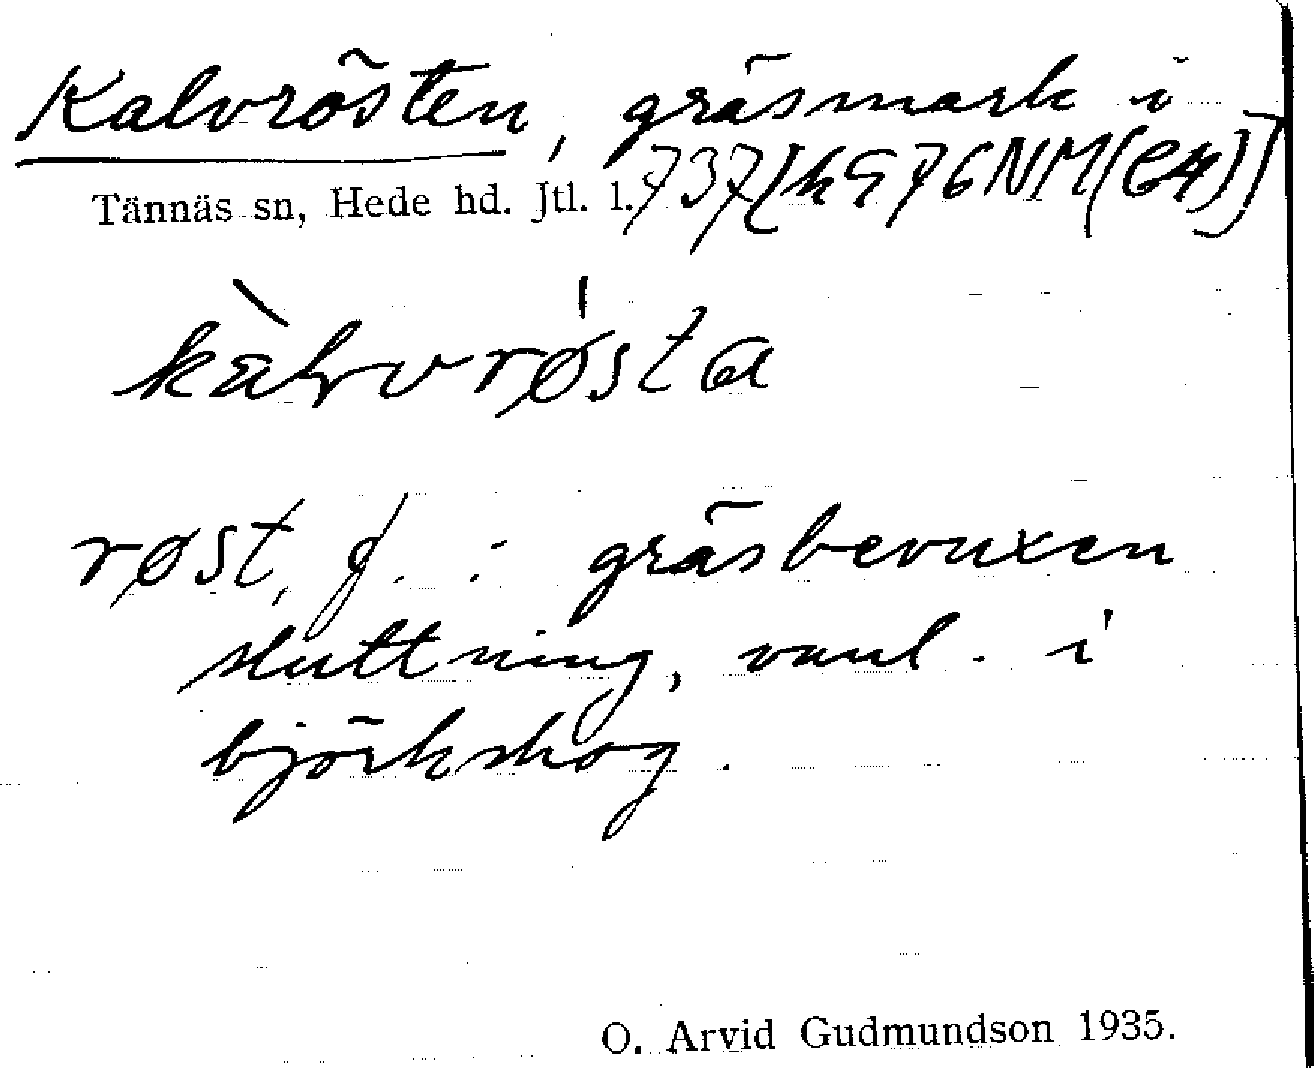 Kalvrösten, gräsmark i
Tännäs sn, Hede hd. Jtl. l. 737[h976NM(C4)]
kàlvrǿsta
røst, f. : gräsbevuxen
sluttning, vanl. i
björkskog.
O. Arvid Gudmundson 1935.